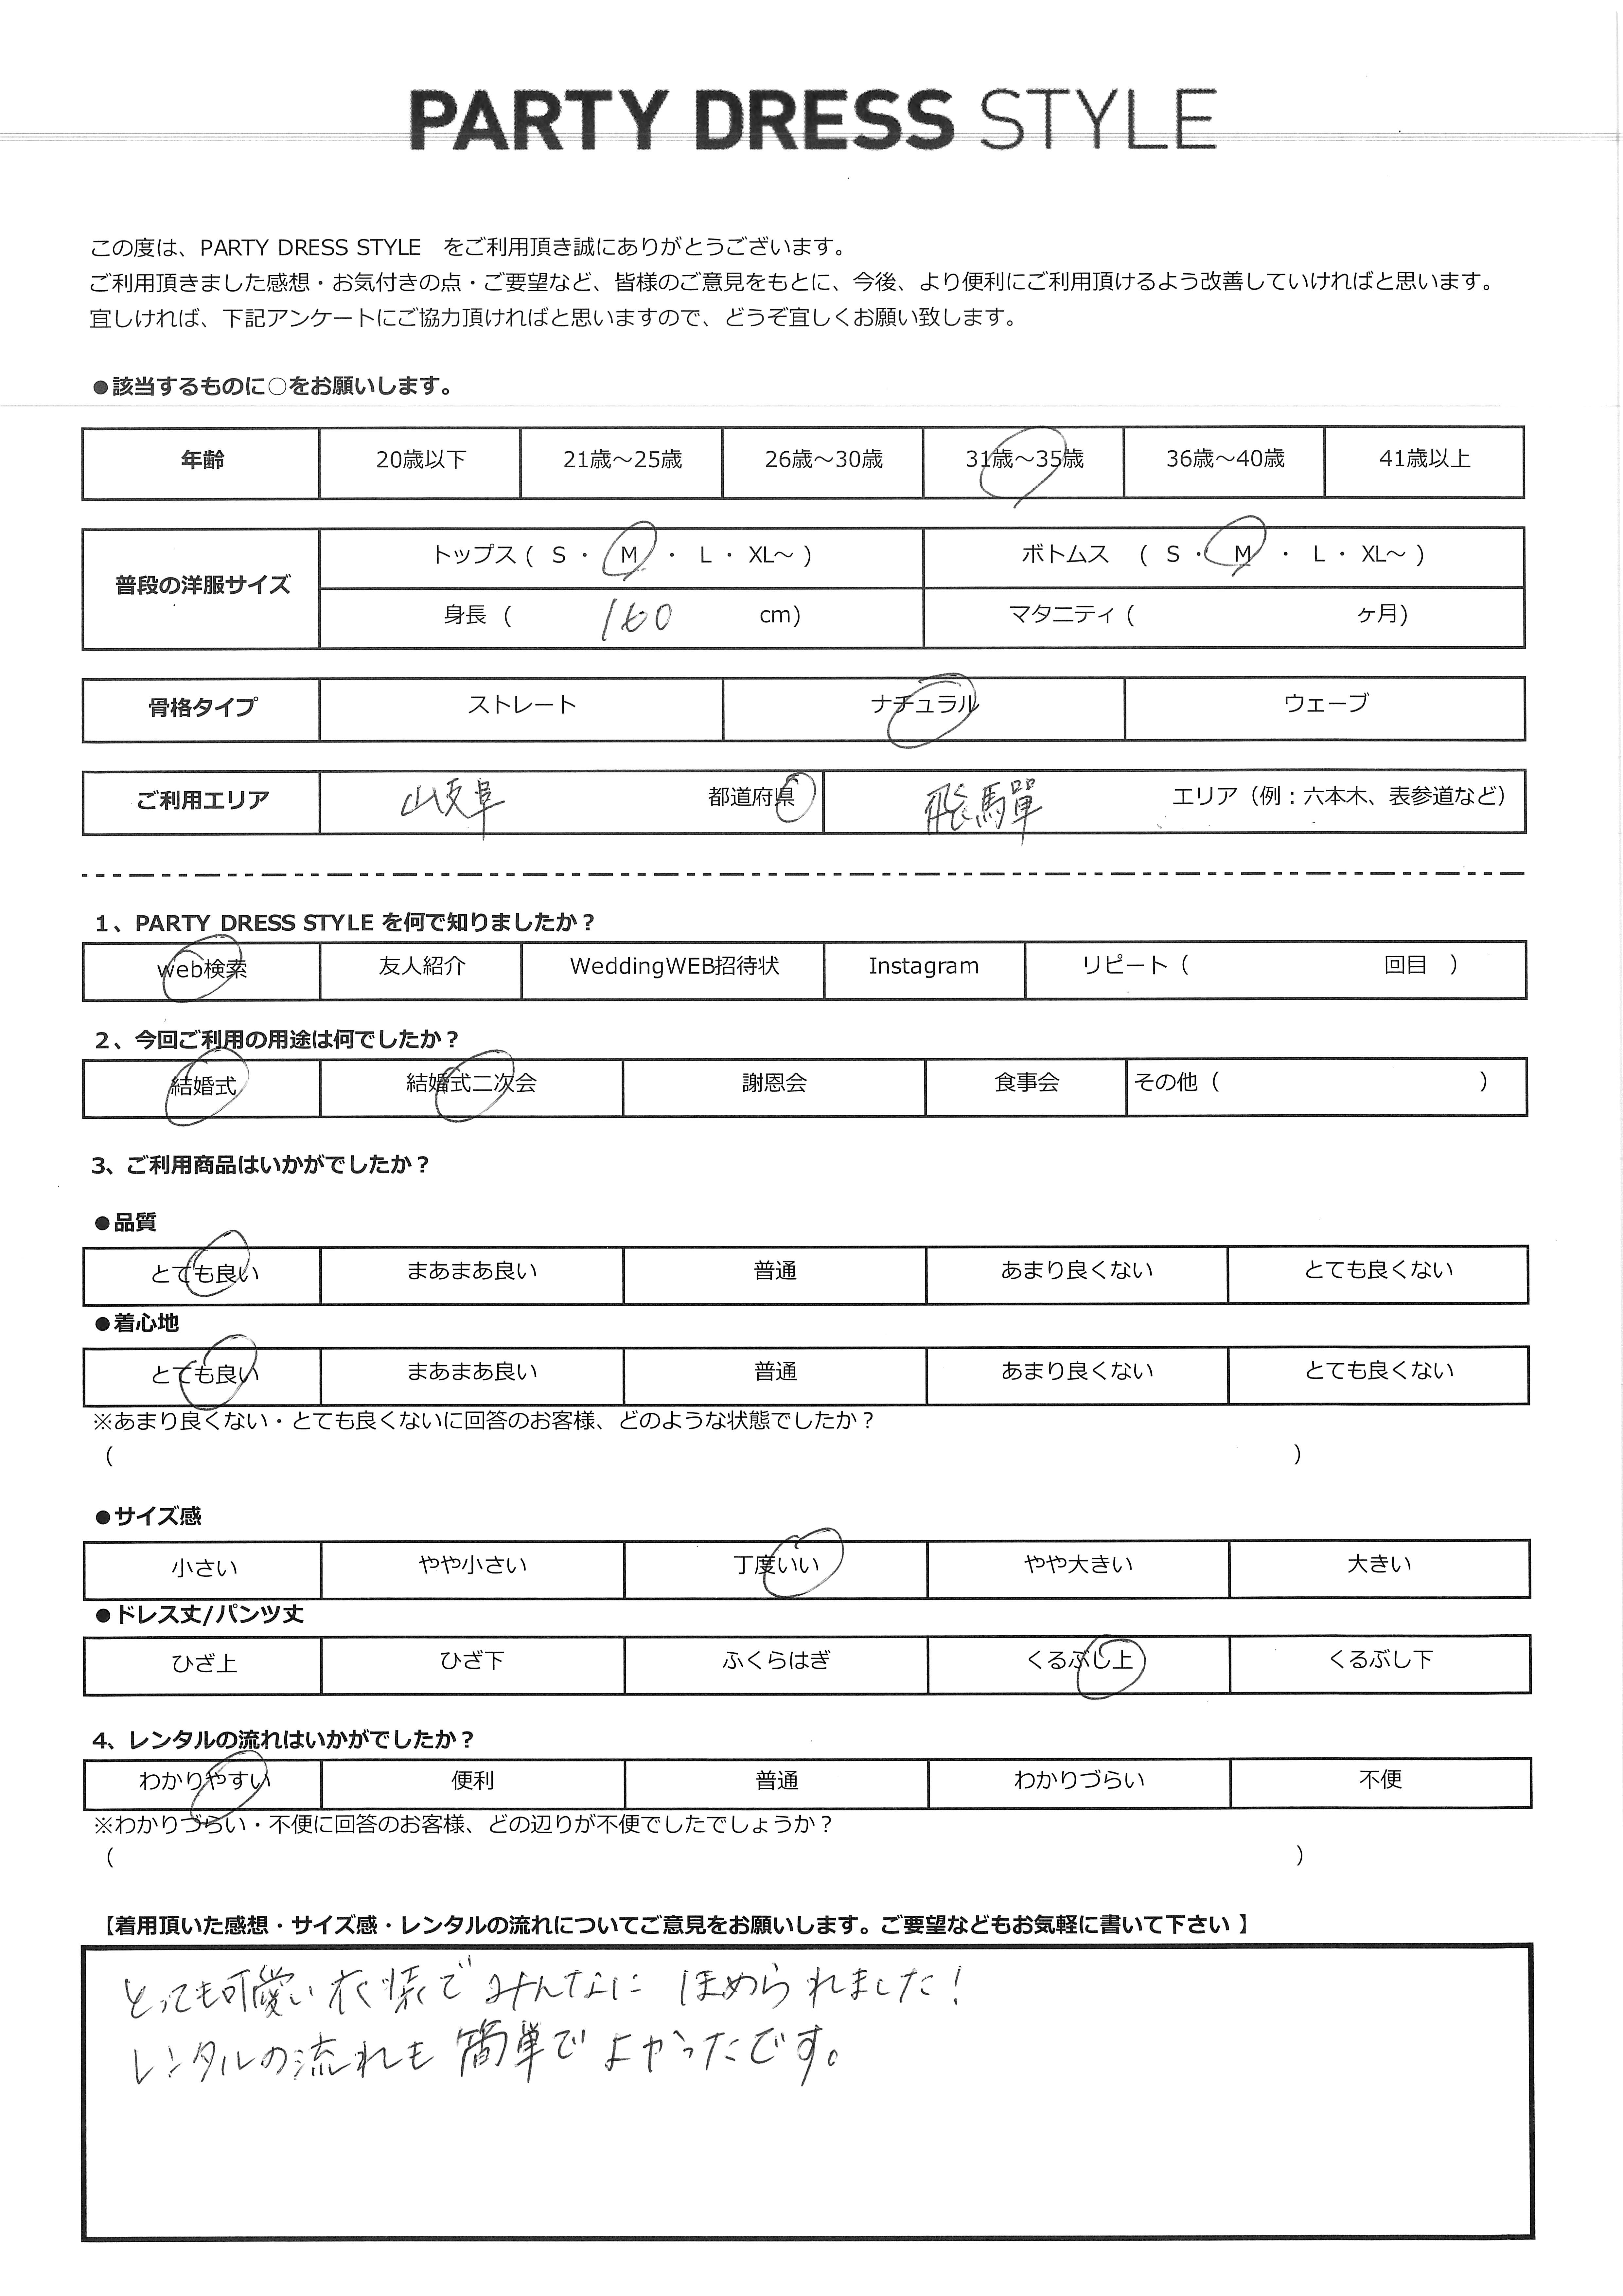 PARTY DRESS STYLE
この度は、PARTY DRESS STYLE　をご利用頂き誠にありがとうございます。
ご利用頂きました感想・お気付きの点・ご要望など、皆様のご意見をもとに、今後、より便利にご利用頂けるよう改善していければと思います。
宜しければ、下記アンケートにご協力頂ければと思いますので、どうぞ宜しくお願い致します。
●該当するものに○をお願いします。
年齢 20歳以下 21歳～25歳 26歳～30歳 31歳～35歳 36歳～40歳 41歳以上
普段の洋服サイズ トップス ( S ・ M ・ L ・ XL～ ) ボトムス ( S ・ M ・ L ・ XL～ )
身長 ( 160 cm) マタニティ ( ヶ月)
骨格タイプ ストレート ナチュラル ウェーブ
ご利用エリア 岐阜 都道府県 飛騨 エリア（例：六本木、表参道など）
1、PARTY DRESS STYLE を何で知りましたか？
web検索 友人紹介 WeddingWEB招待状 Instagram リピート（ 回目 ）
2、今回ご利用の用途は何でしたか？
結婚式 結婚式二次会 謝恩会 食事会 その他（ ）
3、ご利用商品はいかがでしたか？
●品質
とても良い まあまあ良い 普通 あまり良くない とても良くない
●着心地
とても良い まあまあ良い 普通 あまり良くない とても良くない
※あまり良くない・とても良くないに回答のお客様、どのような状態でしたか？
（ ）
●サイズ感
小さい やや小さい 丁度いい やや大きい 大きい
●ドレス丈/パンツ丈
ひざ上 ひざ下 ふくらはぎ くるぶし上 くるぶし下
4、レンタルの流れはいかがでしたか？
わかりやすい 便利 普通 わかりづらい 不便
※わかりづらい・不便に回答のお客様、どの辺りが不便でしたでしょうか？
（ ）
【着用頂いた感想・サイズ感・レンタルの流れについてご意見をお願いします。ご要望などもお気軽に書いて下さい 】
とっても可愛い衣装でみんなに ほめられました！
レンタルの流れも簡単でよかったです。